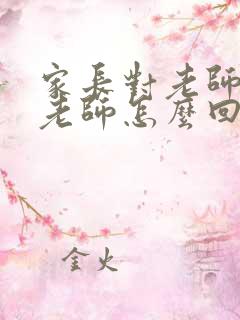 家長對老師
老師怎麼回
金火